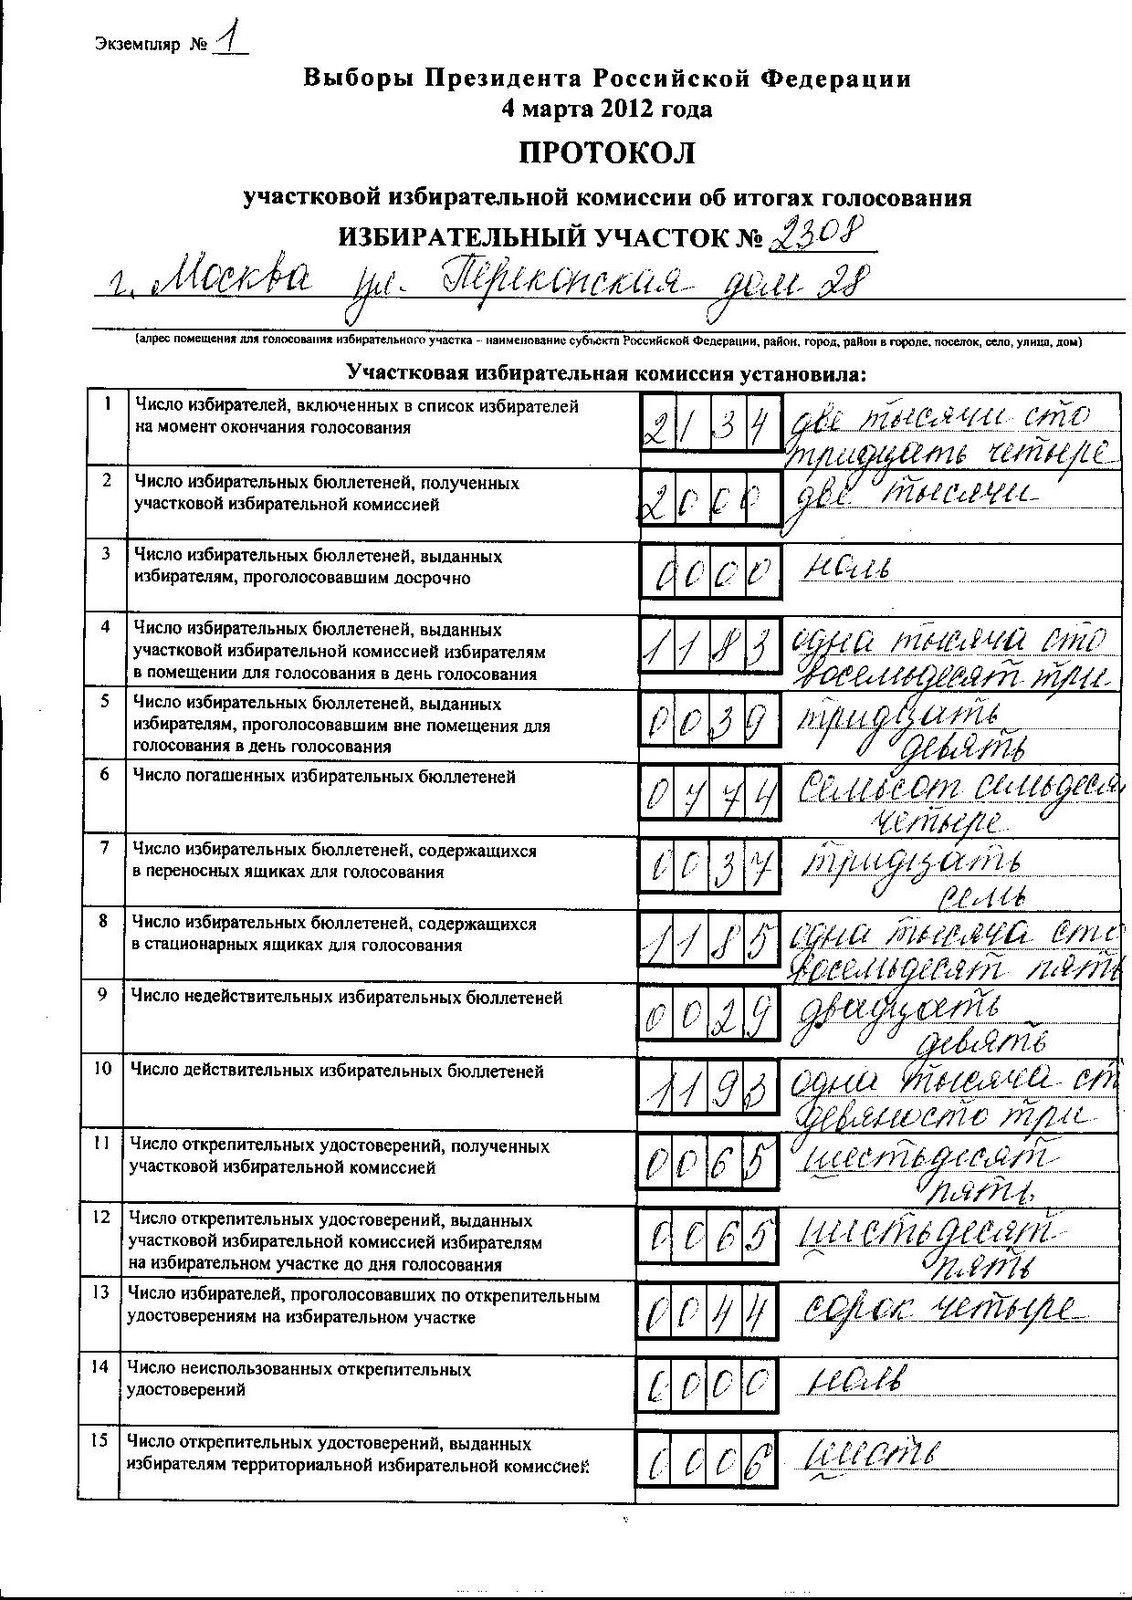 Экземпляр № 1
Выборы Президента Российской Федерации
4 марта 2012 года
ПРОТОКОЛ
участковой избирательной комиссии об итогах голосования
ИЗБИРАТЕЛЬНЫЙ УЧАСТОК № 2308
г. Москва ул. Перекопская дом 28
(адрес помещения для голосования избирательного участка – наименование субъекта Российской Федерации, район, город, район в городе, поселок, село, улица, дом)
Участковая избирательная комиссия установила:
1 Число избирателей, включенных в список избирателей 2134 две тысячи сто
на момент окончания голосования тридцать четыре
2 Число избирательных бюллетеней, полученных 2000 две тысячи
участковой избирательной комиссией
3 Число избирательных бюллетеней, выданных 0000 ноль
избирателям, проголосовавшим досрочно
4 Число избирательных бюллетеней, выданных 1183 одна тысяча сто
участковой избирательной комиссией избирателям восемьдесят три
в помещении для голосования в день голосования
5 Число избирательных бюллетеней, выданных 0039 тридцать
избирателям, проголосовавшим вне помещения для девять
голосования в день голосования
6 Число погашенных избирательных бюллетеней 0774 семьсот семьдеся
четыре
7 Число избирательных бюллетеней, содержащихся 0037 тридцать
в переносных ящиках для голосования семь
8 Число избирательных бюллетеней, содержащихся 1185 одна тысяча сто
в стационарных ящиках для голосования восемьдесят пять
9 Число недействительных избирательных бюллетеней 0029 двадцать
девять
10 Число действительных избирательных бюллетеней 1193 одна тысяча ст
девяносто три
11 Число открепительных удостоверений, полученных 0065 шестьдесят
участковой избирательной комиссией пять
12 Число открепительных удостоверений, выданных 0065 шестьдесят
участковой избирательной комиссией избирателям пять
на избирательном участке до дня голосования
13 Число избирателей, проголосовавших по открепительным 0044 сорок четыре
удостоверениям на избирательном участке
14 Число неиспользованных открепительных 0000 ноль
удостоверений
15 Число открепительных удостоверений, выданных 0006 шесть
избирателям территориальной избирательной комиссией